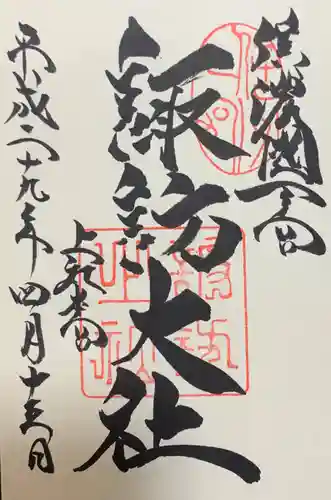 信濃國一之宮
諏訪大社
上社本宮
平成二十九年四月十六日